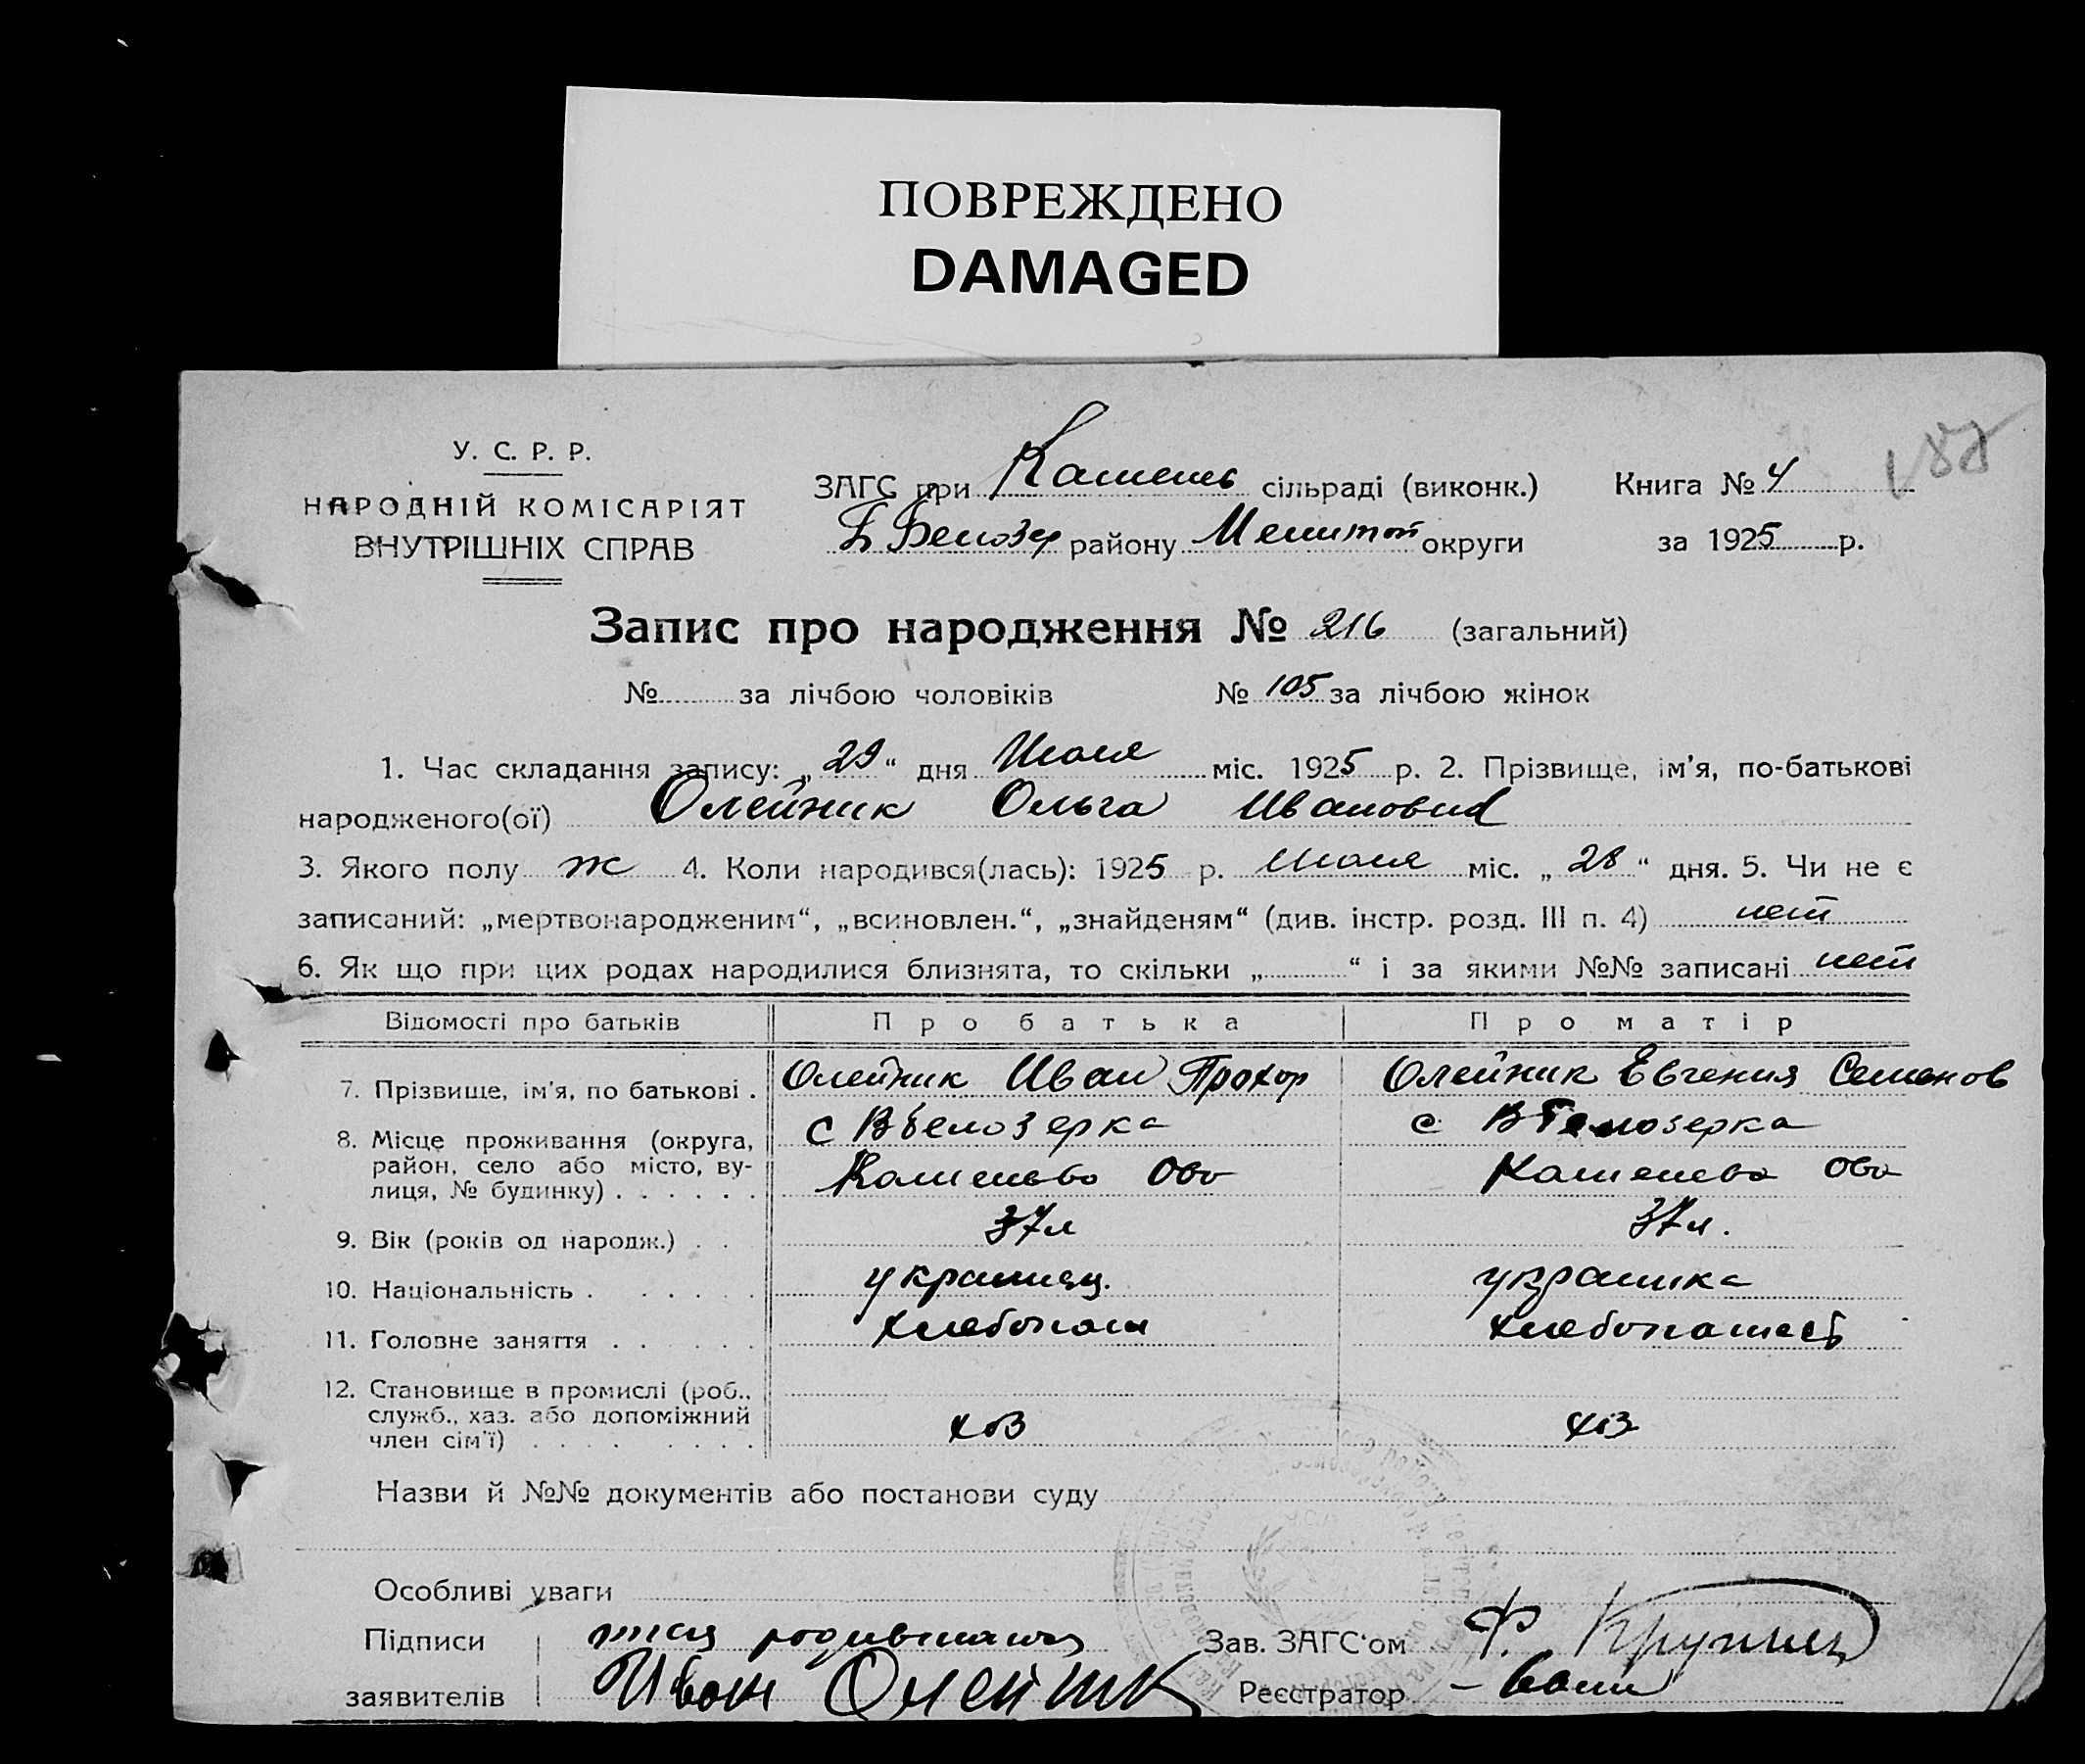 ПОВРЕЖДЕНО
DAMAGED
182
У. С. Р. Р.
НАРОДНІЙ КОМІСАРІЯТ
ВНУТРІШНІХ СПРАВ
ЗАГС при Каменев сільраді (виконк.) Книга № 4
Б Белозер району Мелитоп округи за 1925 р.
Запис про народження № 216 (загальний)
№ за лічбою чоловіків № 105 за лічбою жінок
1. Час складання запису: „29“ дня Июля міс. 1925 р. 2. Прізвище, ім'я, по-батькові
народженого(ої) Олейник Ольга Иванович
3. Якого полу ж 4. Коли народився(лась): 1925 р. Июля міс. „28“ дня. 5. Чи не є
записаний: „мертвонародженим“, „всиновлен.“, „знайденям“ (див. інстр. розд. III п. 4) нет
6. Як що при цих родах народилися близнята, то скільки „ “ і за якими №№ записані нет
Відомості про батьків Про батька Про матір
7. Прізвище, ім'я, по батькові . Олейник Иван Прохор Олейник Евгения Семенов
8. Місце проживання (округа, с ВБелозерка с ВБелозерка
район, село або місто, ву-
лиця, № будинку) . . . . . . Каменева Ово Каменева Ово
9. Вік (років од народж.) . . 37л 37л.
10. Національність . . . . . . украинец. украинка
11. Головне заняття . . . . . . хлебопаш хлебопашест
12. Становище в промислі (роб.,
служб., хаз. або допоміжний
член сім'ї) . . . . . . . . хоз хоз
Назви й №№ документів або постанови суду
Особливі уваги
Підписи Зав. ЗАГС'ом Ф.
заявителів Иван Олейник Реєстратор